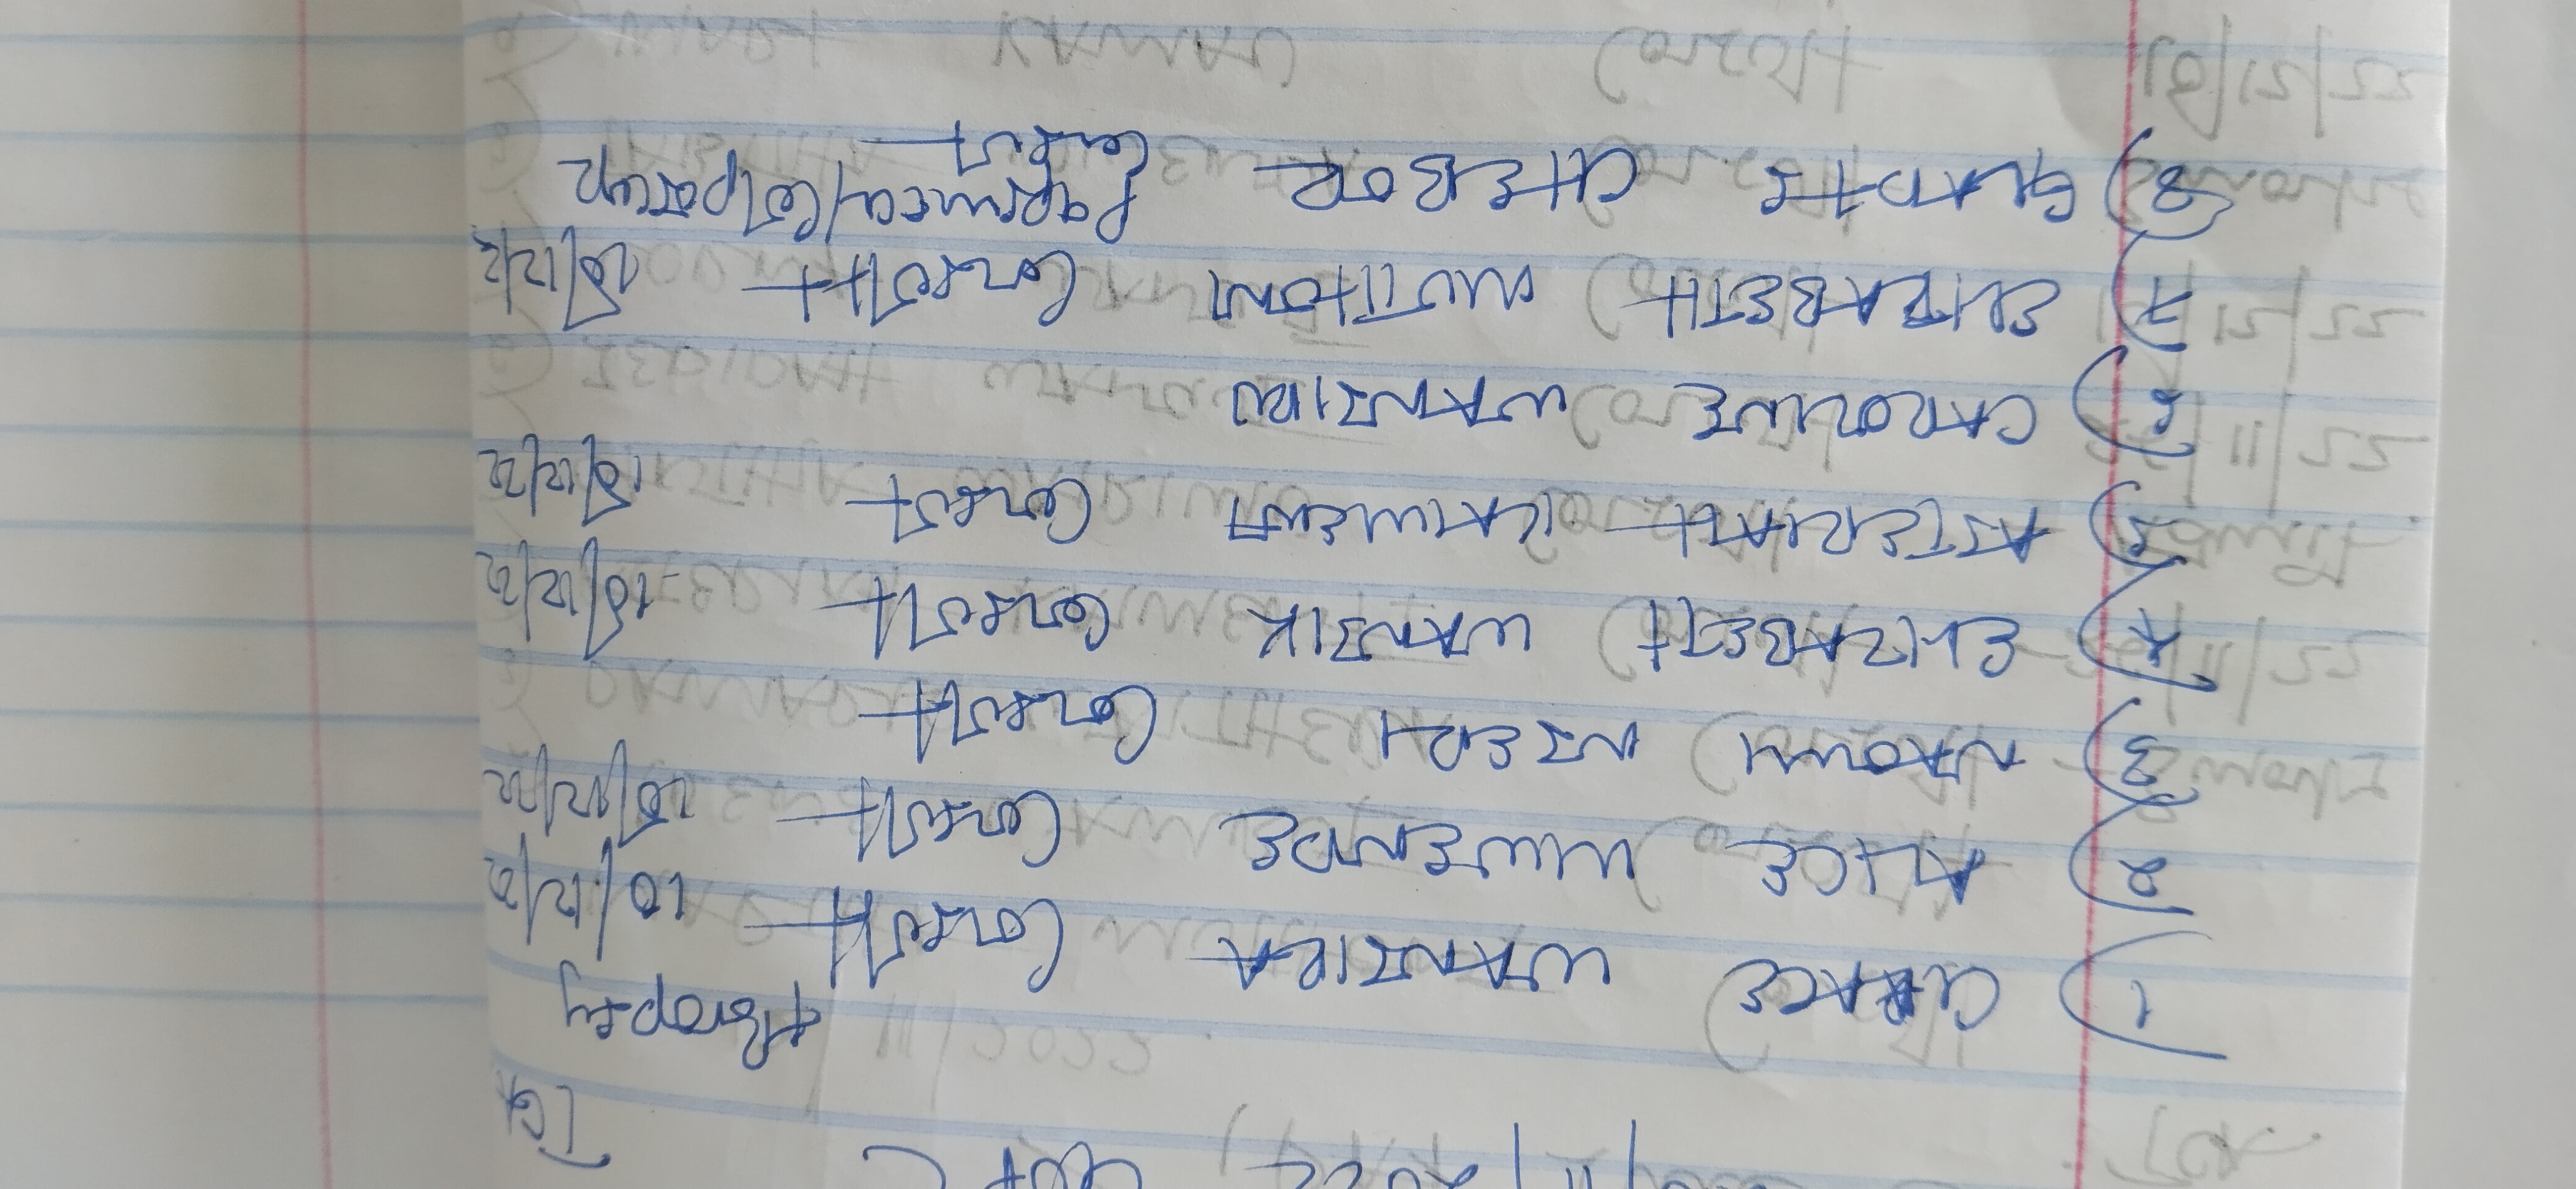 /11/2022 GOPC
TCA
+Biopsy
1) GRACE WANJIRA Consult 10/12/22
2) ALICE MWENDE Consult 10/12/22
3) NAOMI NJERI Consult
4) ELIZABETH WANJIK Consult 10/12/22
5) ASTERIAH KAIMENYI Consult 10/12/22
6) CAROLINE WANJIRU
7) ELIZABETH MUTHONI Consult + 10/12/2
8) GLADYS CHEBOR Papsmear/Colposcop
Consult